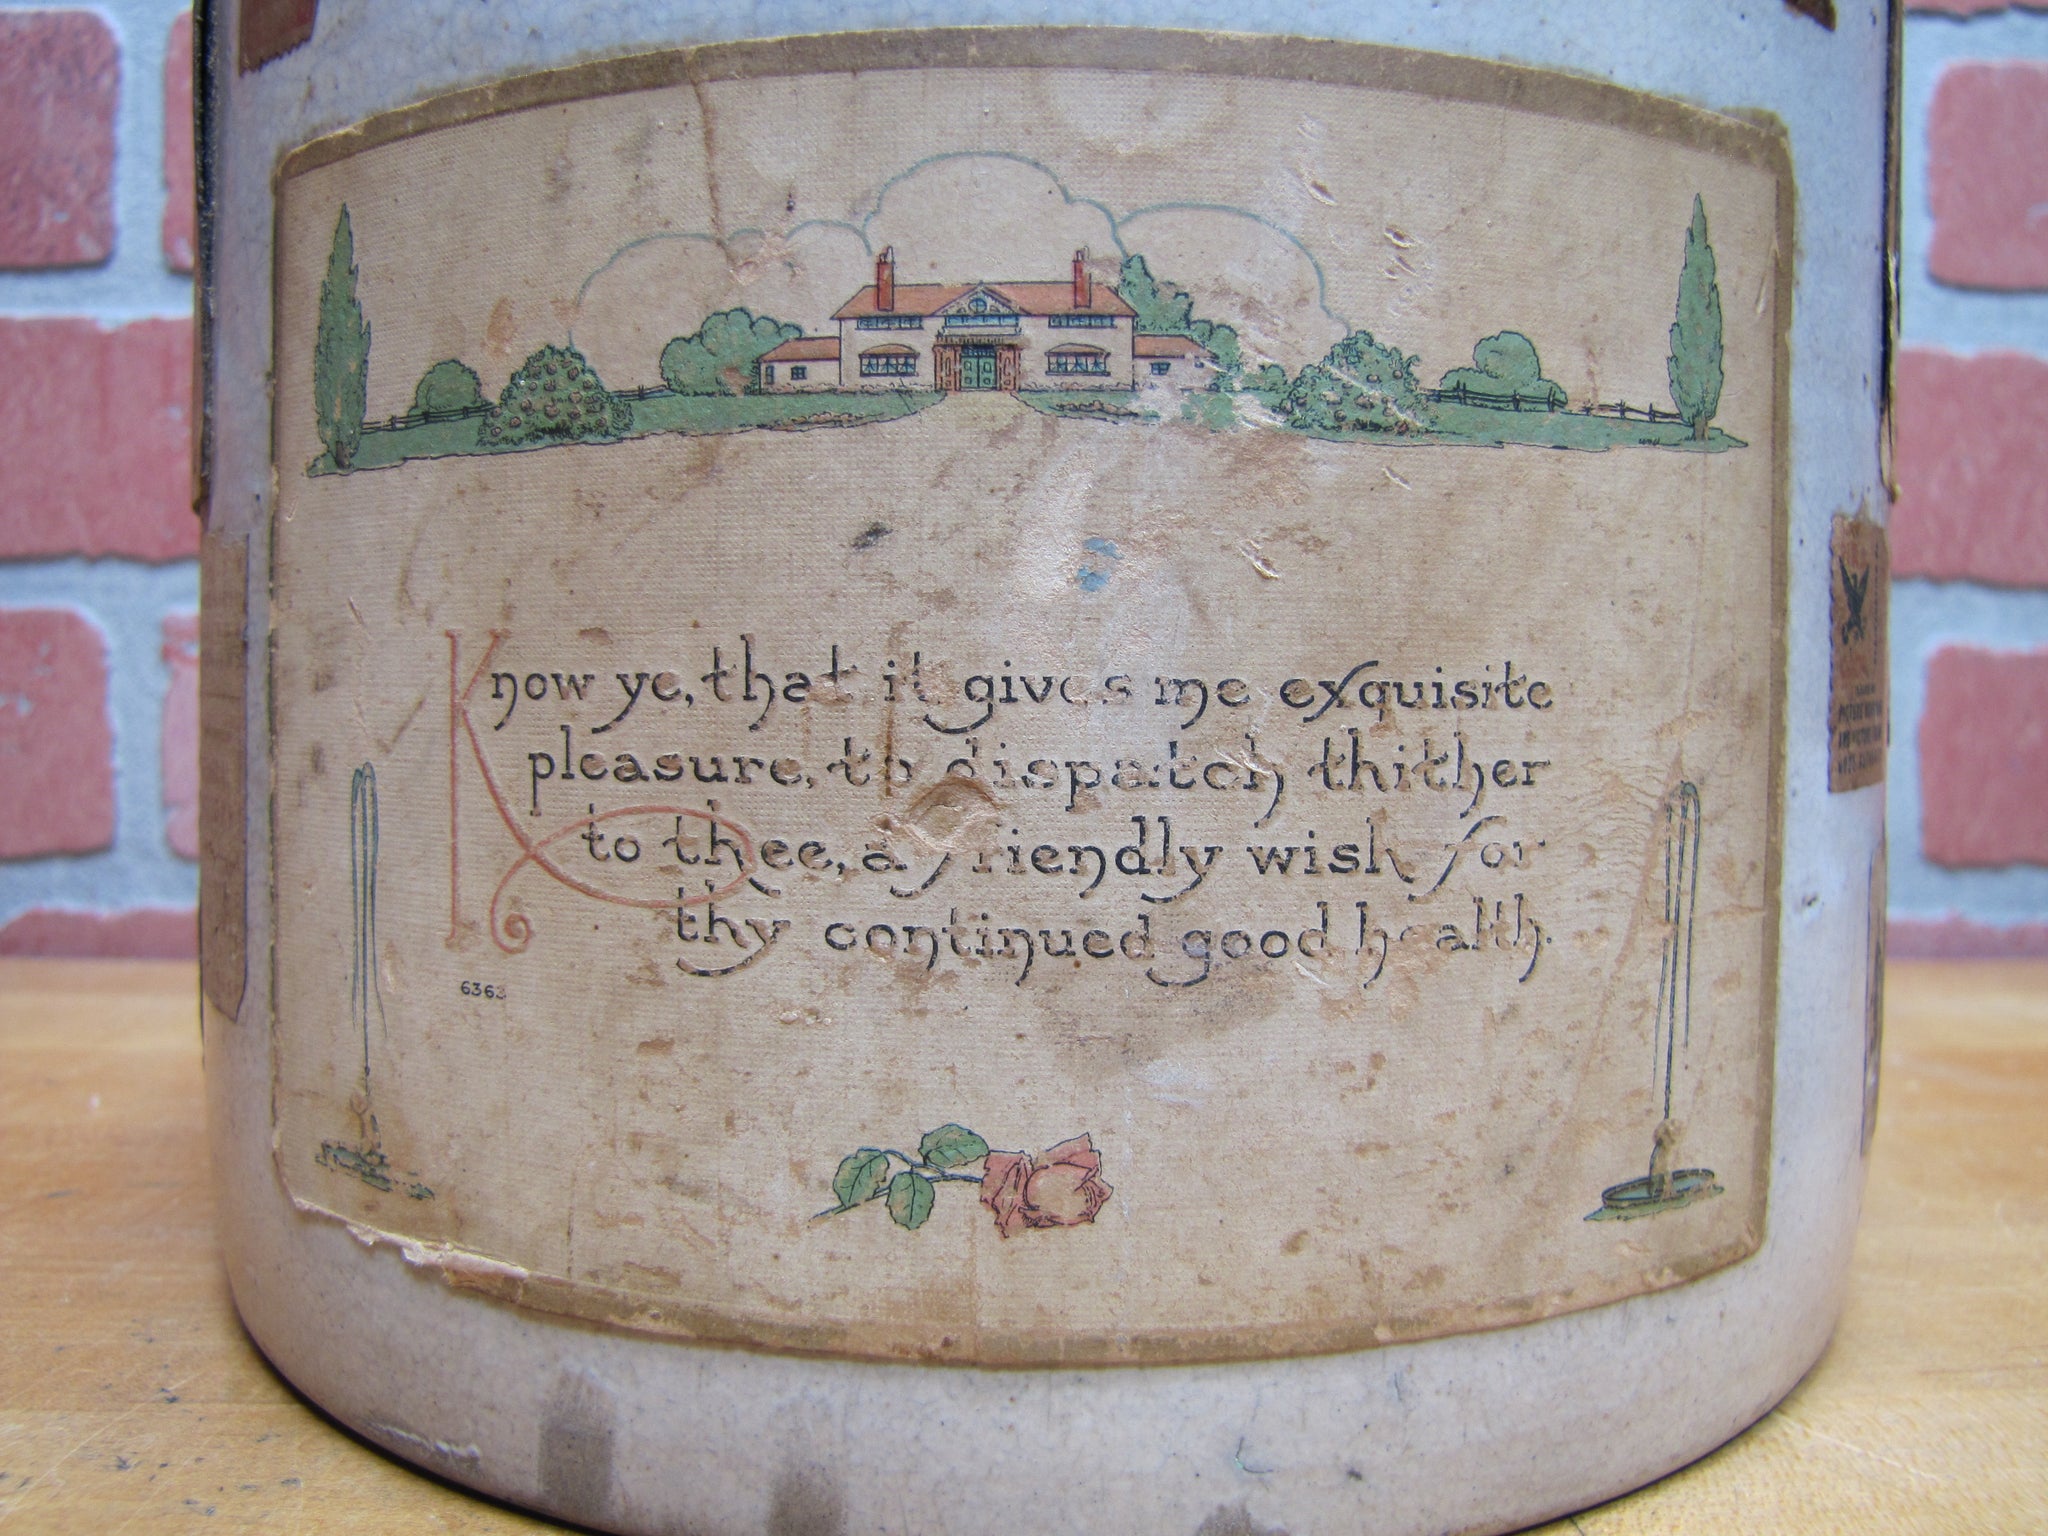 Know ye, that it gives me exquisite
pleasure, to dispatch thither
to thee, a friendly wish for
thy continued good health.
6363